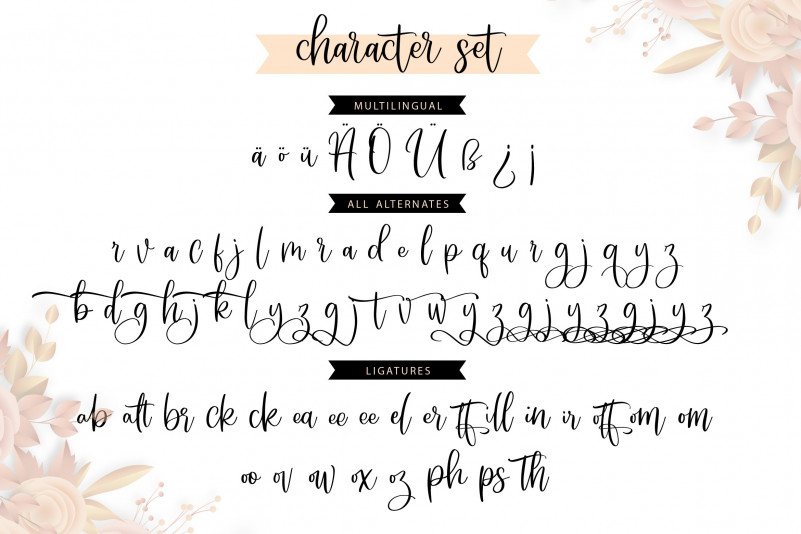 character set
MULTILINGUAL
ä ö ü Ä Ö Ü ß ¿ ¡
ALL ALTERNATES
r v a c f j l m r a d e l p q u r g j q y z
b d g h j k l y z g j t v w y z g j y z g j y z
LIGATURES
ab att br ck ck ea ee ee el er tt ill in ir off om om
oo ov ow ox oz ph ps th